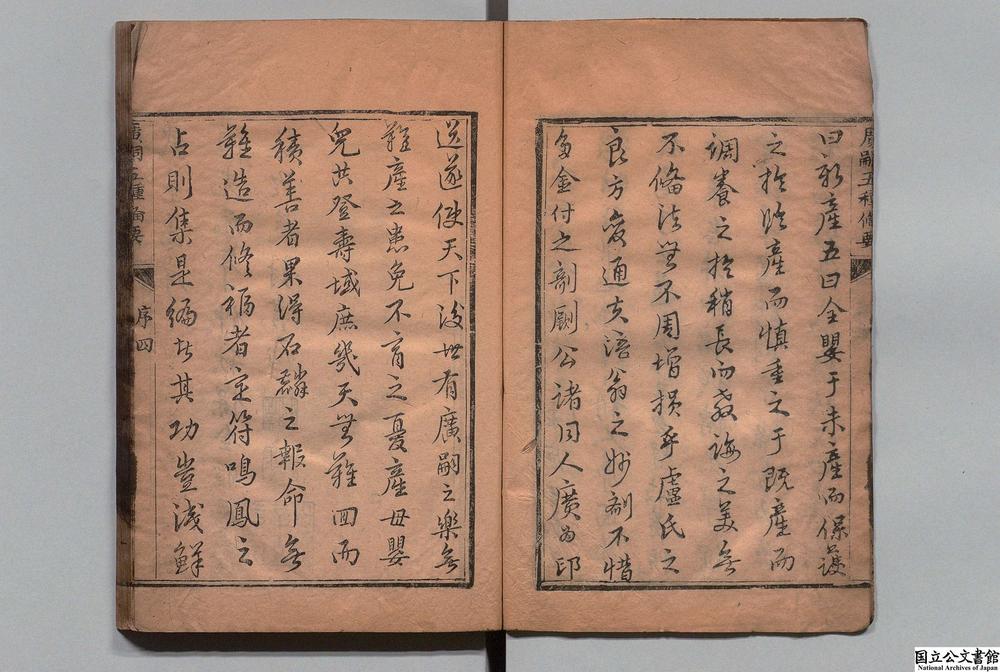 廣嗣五種備要
曰新產五曰全嬰于未產而保護
之於臨產而慎重之于既產而
調養之於稍長而教誨之美無
不備法無不周增損乎盧氏之
良方變通夫語翁之妙劑不惜
多金付之剞劂公諸同人廣為印
送遂使天下後世有廣嗣之樂無
難產之患免不育之憂產母嬰
兒共登壽域庶幾天無難回而
積善者果得石麟之報命無
難造而修福者定符鳴鳳之
占則集是編者其功豈淺鮮
廣嗣五種備要
序 四
国立公文書館
National Archives of Japan